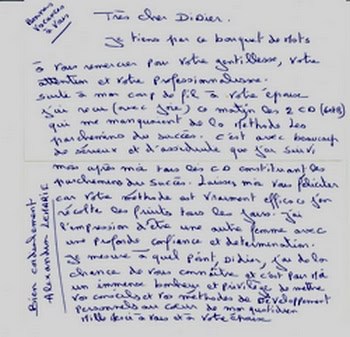 Bonnes
Vacances
à vous
Très cher Didier.
Je tiens par ce bouquet de Mots
à vous remercier pour votre gentillesse, votre
attention et votre professionnalisme.
suite à mon coup de fil à votre épouse
j'ai reçu (avec joie) ce matin les 2 CD (6et8)
qui me manquaient de la Méthode les
parchemins du succès. C'est avec beaucoup
de sérieux et d'assiduité que j'ai suivi
mois après mois tous les CD constituant les
parchemins du succès. Laissez moi vous féliciter
car votre méthode est vraiment efficace j'en
récolte les fruits tous les jours. j'ai
l'impression d'être une autre femme avec
une profonde confiance et determination.
Je mesure à quel point, Didier, j'ai de la
chance de vous connaître et c'est par là
un immense bonheur et privilège de mettre
vos conseils et vos méthodes de Développement
Personnels au cœur de mon quotidien
Mille merci à vous et à votre épouse
Bien cordialement
Alexandra